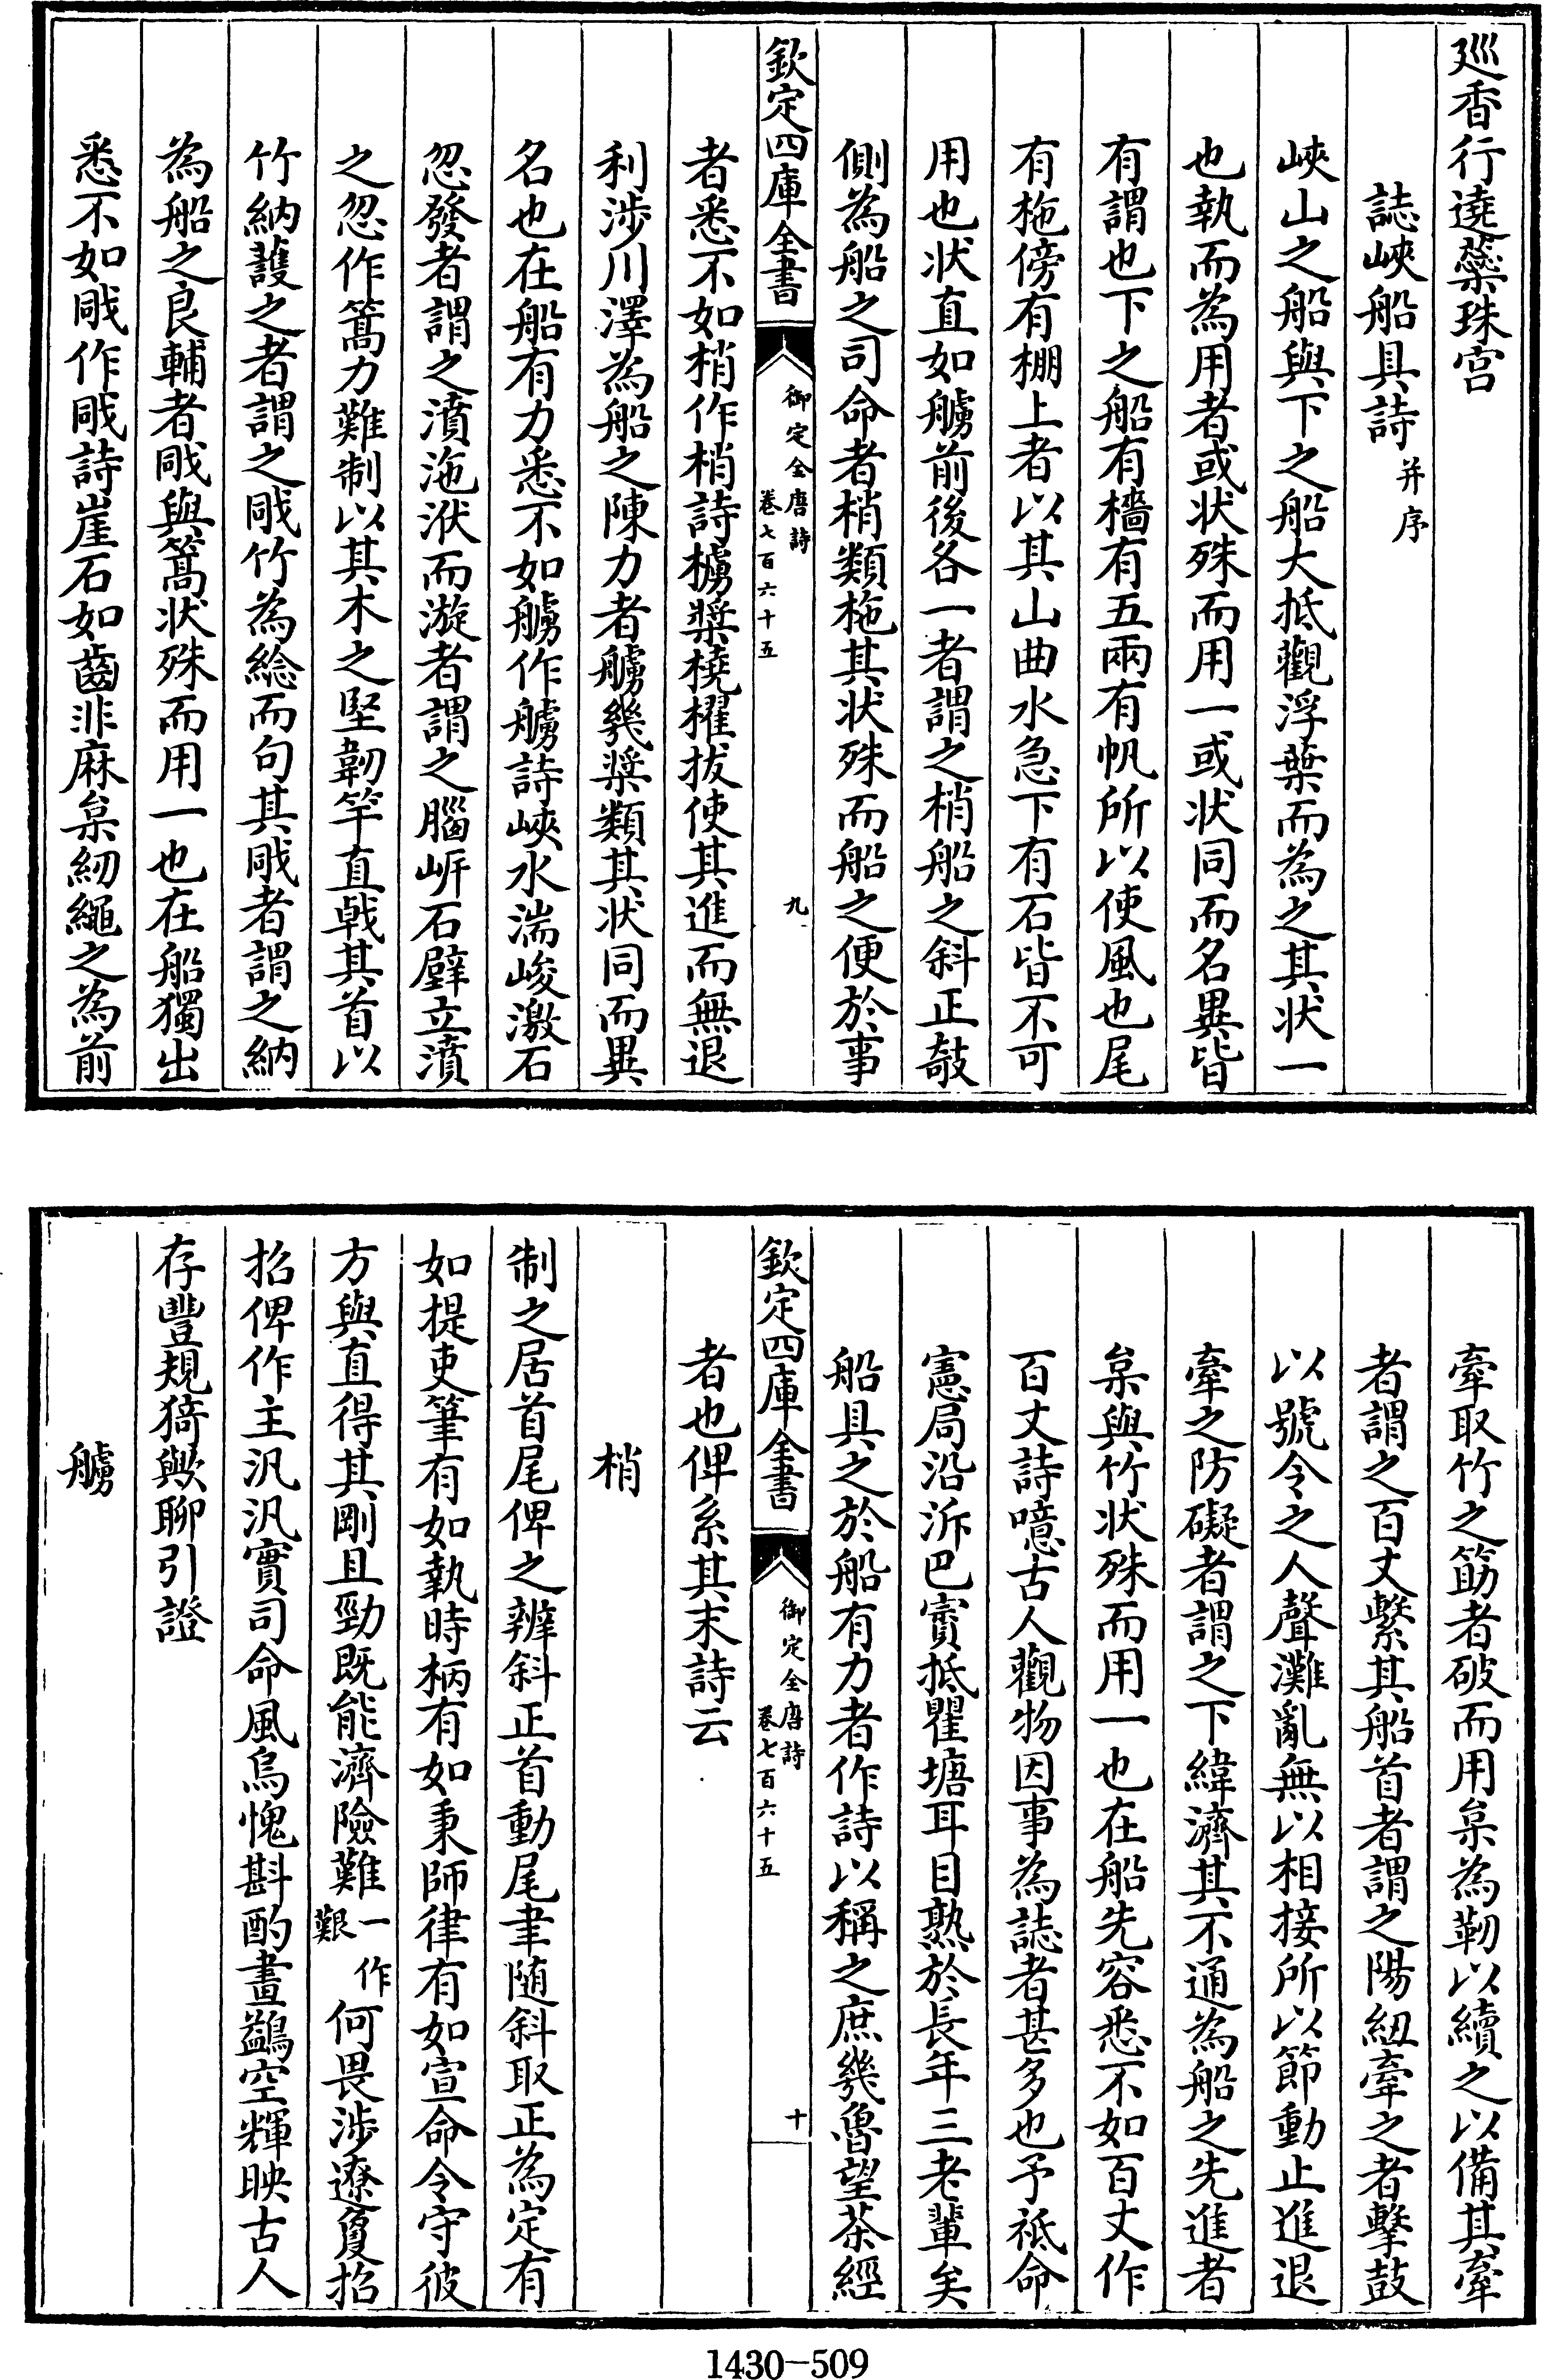 廵香行遶蘂珠宫
誌峽船具詩并序
峽山之船與下之船大抵觀浮葉而為之其状一
也執而為用者或状殊而用一或状同而名異皆
有謂也下之船有檣有五兩有帆所以使風也尾
有柂傍有棚上者以其山曲水急下有石皆不可
用也状直如艣前後各一者謂之梢船之斜正敧
側為船之司命者梢類柂其状殊而船之便於事
欽定四庫全書
御定全唐詩
卷七百六十五
九
者悉不如梢作梢詩櫓槳橈櫂拔使其進而無退
利涉川澤為船之陳力者艣幾槳類其状同而異
名也在船有力悉不如艣作艣詩峽水湍峻激石
忽發者謂之濆沲洑而漩者謂之腦岍石壁立濆
之忽作篙力難制以其木之堅韌竿直戟其首以
竹納護之者謂之戙竹為䋎而句其戙者謂之納
為船之良輔者戙與篙状殊而用一也在船獨出
悉不如戙作戙詩崖石如齒非麻枲紉繩之為前
牽取竹之筋者破而用枲為䩭以續之以備其牽
者謂之百丈繫其船首者謂之陽紐牽之者擊鼓
以號令之人聲灘亂無以相接所以節動止進退
牽之防礙者謂之下緯濟其不通為船之先進者
枲與竹状殊而用一也在船先容悉不如百丈作
百丈詩噫古人觀物因事為誌者甚多也予祗命
憲局沿泝巴賨抵瞿塘耳目熟於長年三老輩矣
船具之於船有力者作詩以稱之庶幾魯望茶經
欽定四庫全書
御定全唐詩
卷七百六十五
十
者也俾系其末詩云
梢
制之居首尾俾之辨斜正首動尾聿随斜取正為定有
如提吏筆有如執時柄有如秉師律有如宣命令守彼
方與直得其剛且勁既能濟險難一作艱何畏涉遼敻招
招俾作主汎汎實司命風烏愧斟酌畫鷁空輝映古人
存豐規猗歟聊引證
艣
1430-509